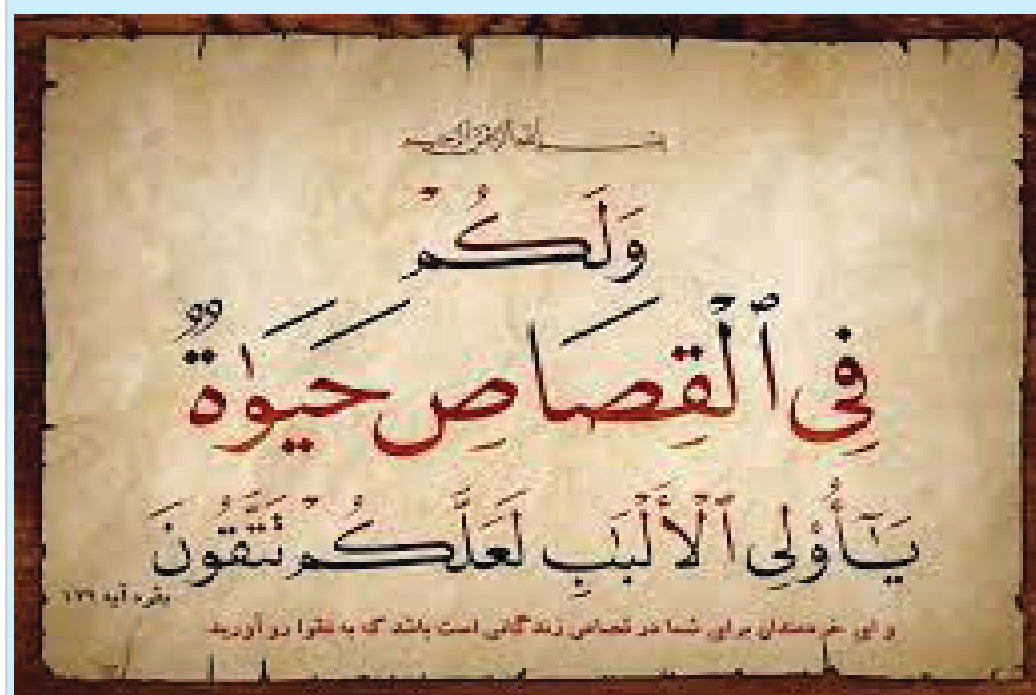 بسم الله الرحمن الرحيم
وَلَكُمْ
فِي ٱلْقِصَاصِ حَيَوٰةٌ
يَـٰٓأُو۟لِي ٱلْأَلْبَـٰبِ لَعَلَّكُمْ تَتَّقُونَ
بقره آیه ۱۷۹
و ای خردمندان برای شما در قصاص زندگانی است باشد که به تقوا رو آورید